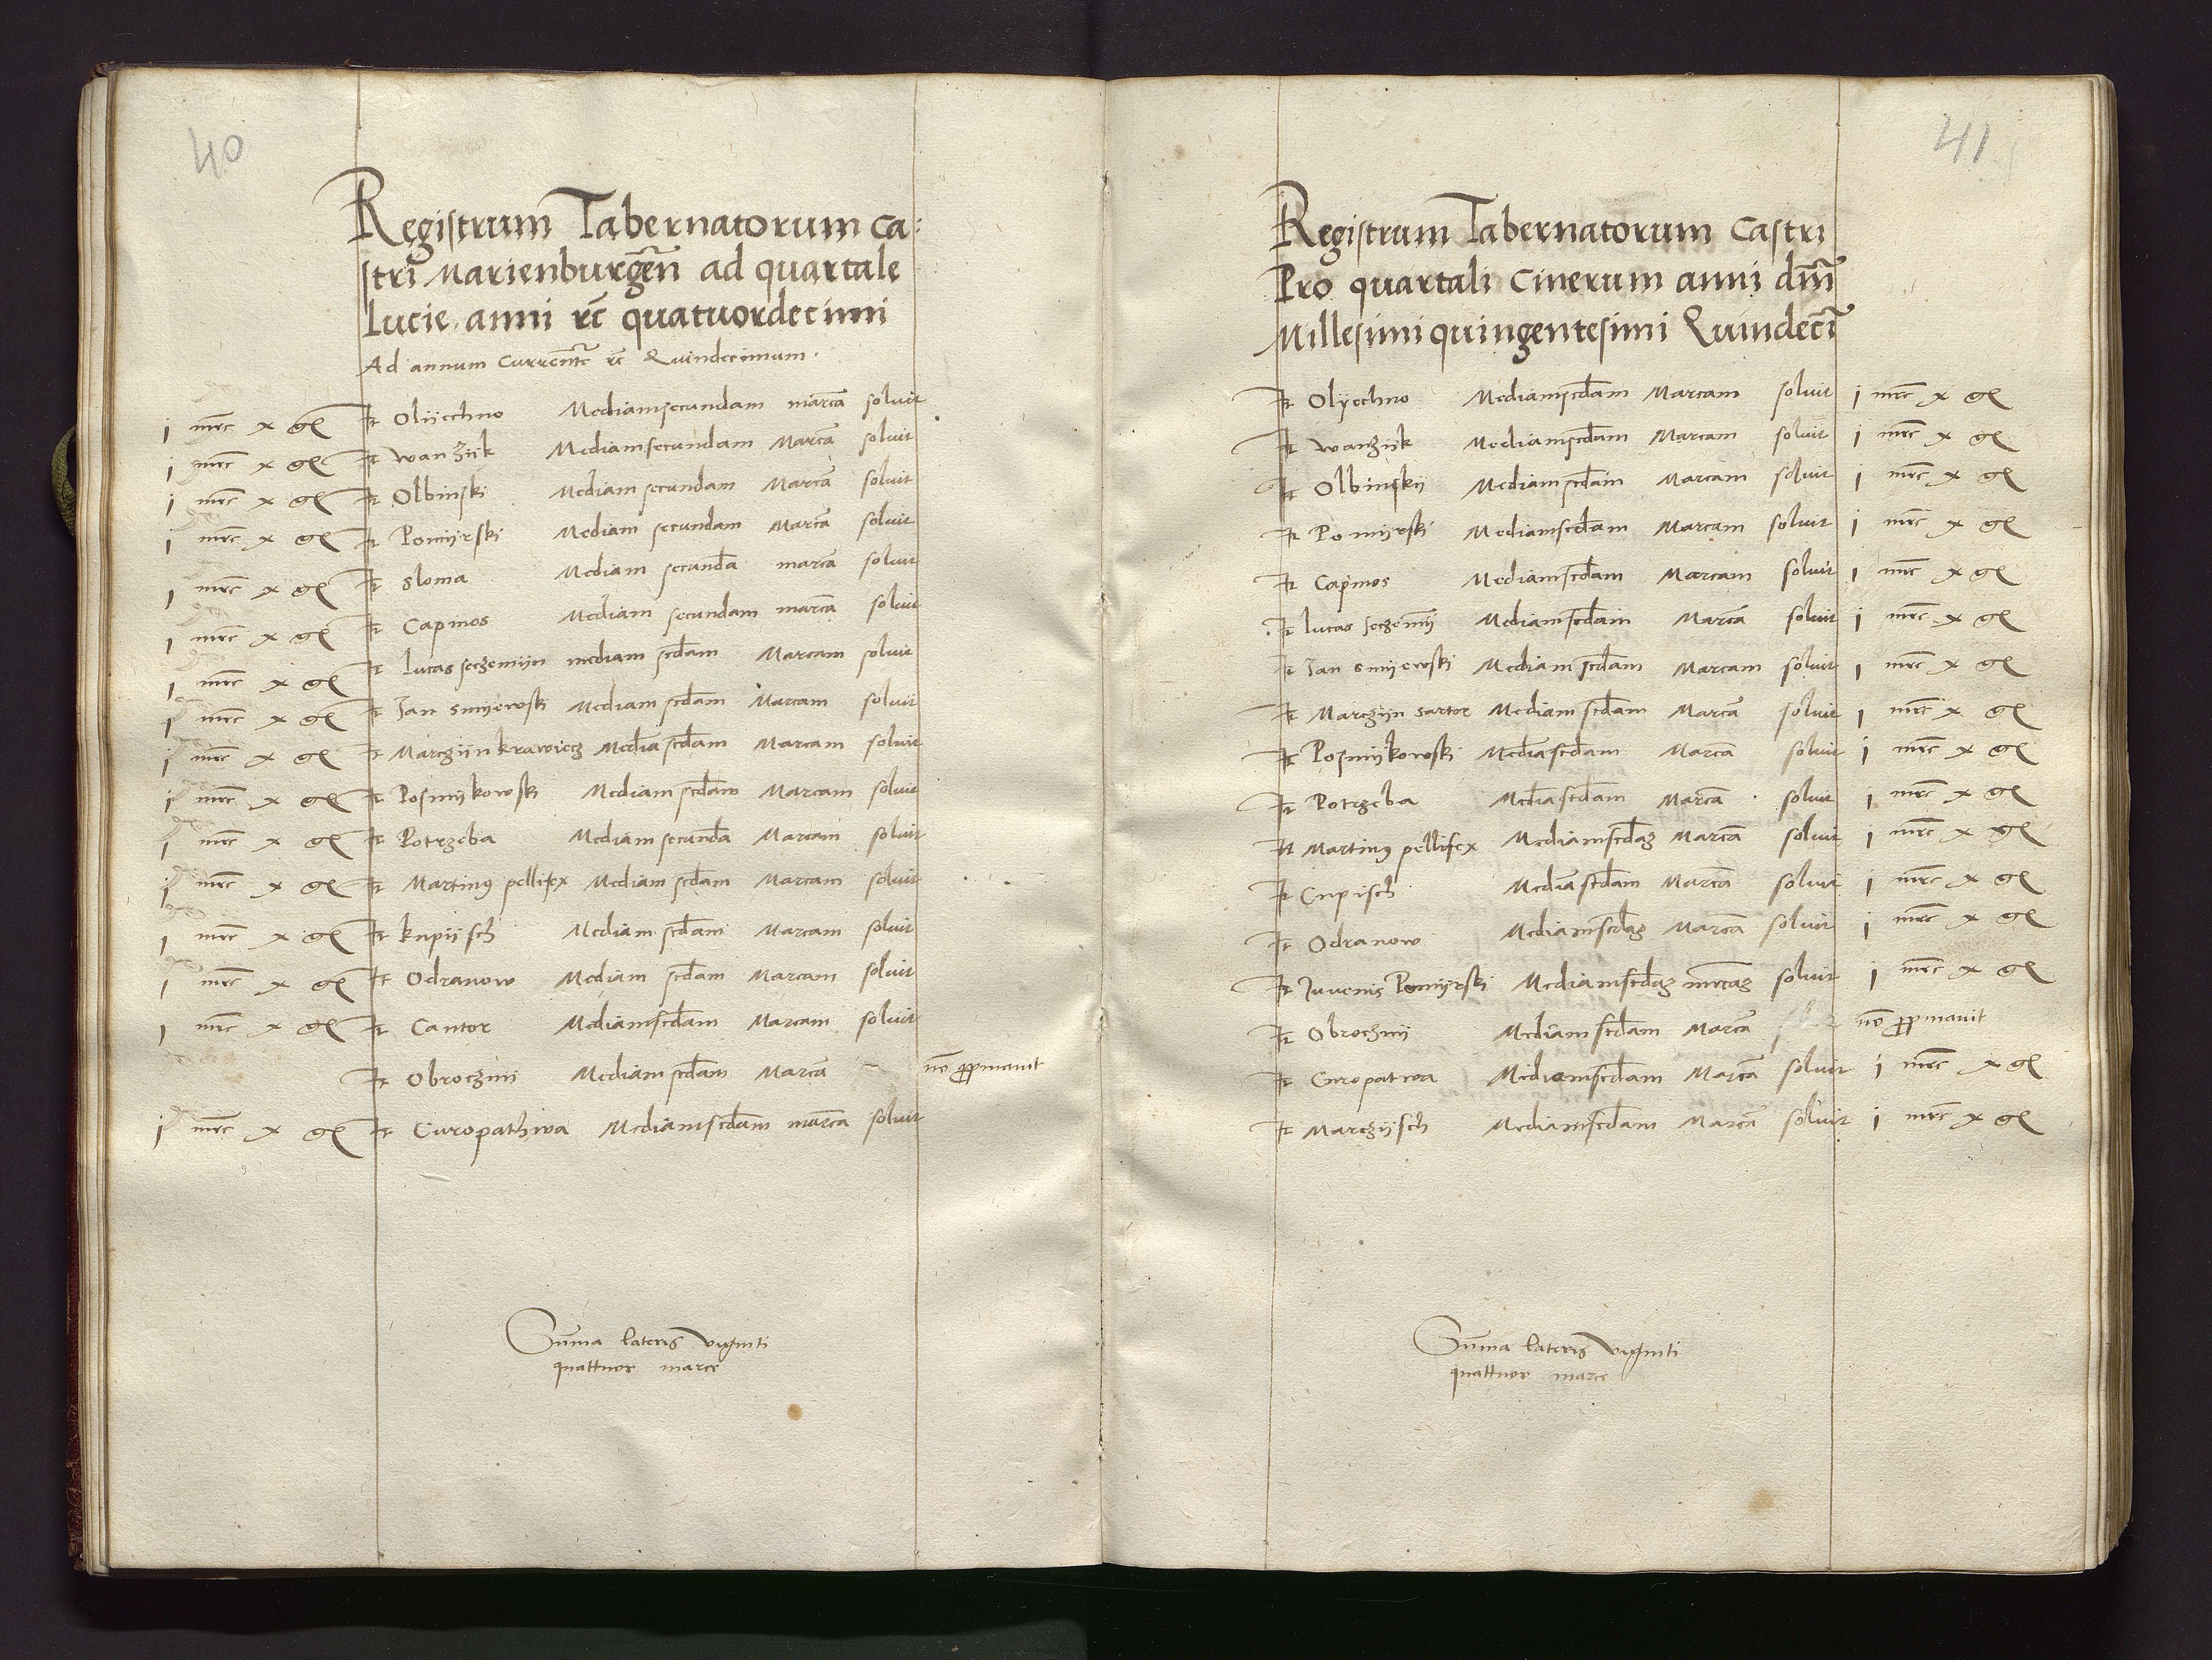 40
Registrum Tabernatorum ca:
stri Marienburgen̄ ad quartale
Lucie anni rc̄ quatuordecimi
Ad annum Currentē rc̄ Quindecimum.
i mrc x gℓ It Olyechno Mediamsecundam marcā soluit
i mrc x gℓ It wanziik Mediamsecundam Marcā soluit
i mrc x gℓ It Olbinski Mediam secundam Marcā soluit
i mrc x gℓ It Pomijrski Mediam secundam Marcā soluit
i mrc x gℓ It Sloma Mediam secundā marcā soluit
i mrc x gℓ It Capinos Mediam secundam marcā soluit
i mrc x gℓ It Lucas seczemijn mediam scdam Marcam soluit
i mrc x gℓ It Jan smijewski Mediam scdam Marcam soluit
i mrc x gℓ It Marcziin krawiecz Mediā scdam Marcam soluit
i mrc x gℓ It Posmijkowski Mediam scdam Marcam soluit
i mrc x gℓ It Potrzeba Mediam secundā Marcam soluit
i mrc x gℓ It Martinꝯ pellifex Mediam scdam Marcam soluit
i mrc x gℓ It knpijsch Mediam scdam Marcam soluit
i mrc x gℓ It Odranow Mediam scdam Marcam soluit
i mrc x gℓ It Cantor Mediamscdam Marcam soluit
It Obroczni Mediam scdam Marcā – nō ꝓpinauit
i mrc x gℓ It Curopathwa Mediamscdam marcā soluit
Sūma lateris viginti
quattuor marce
41
Registrum Tabernatorum Castri
Pro quartali Cinerum anni dm̄
Millesimi quingentesimi Quindecī
It Olyechno Mediamscdam Marcam soluit i mrc x gℓ
It wanziik Mediamscdam Marcam soluit i mrc x gℓ
It Olbinskij Mediamscdam Marcam soluit i mrc x gℓ
It Pomijrski Mediamscdam Marcam soluit i mrc x gℓ
It Capinos Mediamscdam Marcam soluit i mrc x gℓ
It lucas seczemij Mediamscdam Marcā soluit i mrc x gℓ
It Jan smijewski Mediam scdam Marcam soluit i mrc x gℓ
It Marczijn sartor Mediam scdam Marcā soluit i mrc x gℓ
It Posmijkowski Mediāscdam Marcā soluit i mrc x gℓ
It Potrzeba Mediāscdam Marcā soluit i mrc x gℓ
It Martinꝯ pellifex Mediamscdaz Marcā soluit i mrc x gℓ
It Cnpisch Mediā scdam Marcā soluit i mrc x gℓ
It Odranow Mediamscdaz Marcā soluit i mrc x gℓ
It Juvenis Pomijrski Mediamscdaz mrcaz soluit i mrc x gℓ
It Obrocznij Mediam scdam Marcā nō ꝓpinauit
It Curopatwa Mediamscdam Marcā soluit i mrc x gℓ
It Marczijsch Mediamscdam Marcā soluit i mrc x gℓ
Sūma lateris viginti
quattuor marce